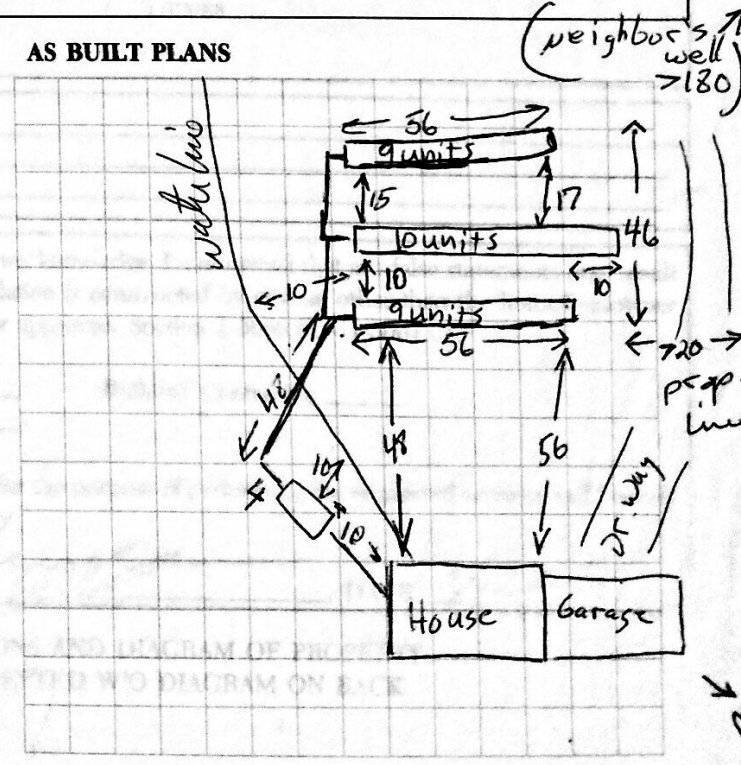 AS BUILT PLANS
(Neighbors
well
>180)
water line
56
9 units
15
17
10 units
46
10
10
10
9 units
56
>20
prop
line
48
48
56
10
4
10
Dr. way
House
Garage